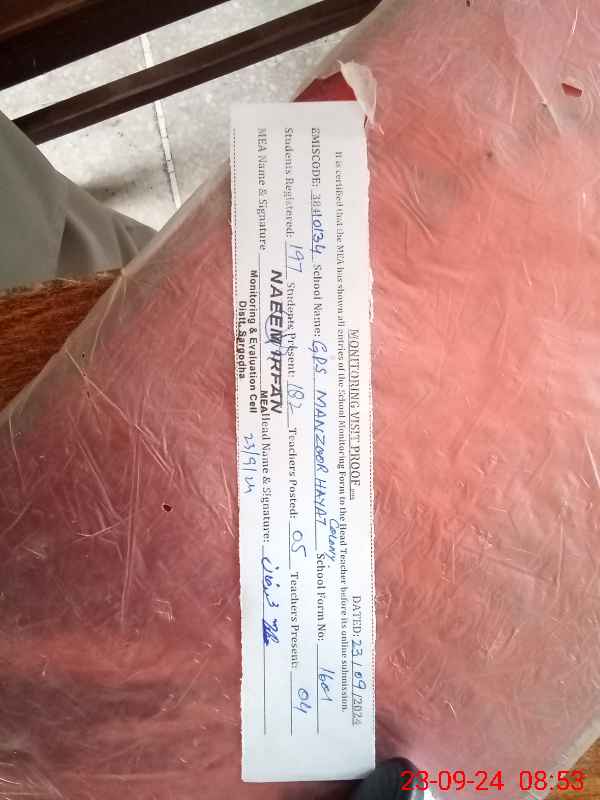 MONITORING VISIT PROOF DATED: 23/09/2024
It is certified that the MEA has shown all entries of the School Monitoring Form to the Head Teacher before its online submission.
EMISCODE: 38410134 School Name: GPS MANZOOR HAYAT Colony School Form No: 1601
Students Registered: 197 Students Present: 182 Teachers Posted: 05 Teachers Present: 04
MEA Name & Signature Head Name & Signature:
NAEEM IRFAN
MEA
Monitoring & Evaluation Cell
Distt. Sargodha
23/9/24
23-09-24 08:53